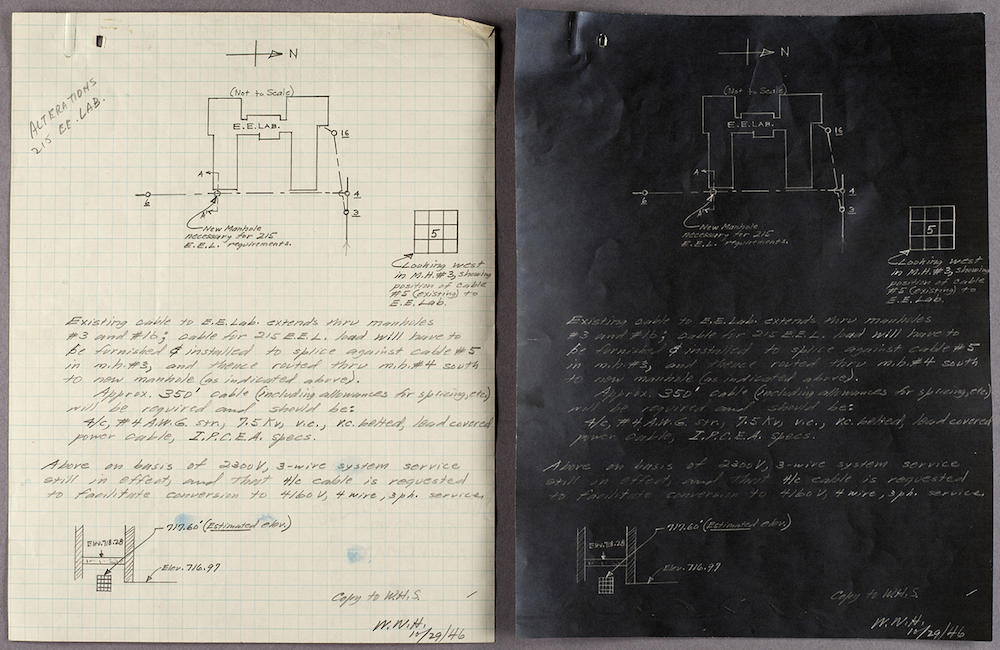 N
ALTERATIONS
215 EE. LAB.
(Not to Scale)
E.E. LAB.
16
A
6
A'
4
3
New Manhole
necessary for 215
E.E.L. requirements.
5
Looking west
in M.H.#3, showing
position of cable
#5 (existing) to
E.E. Lab.
Existing cable to E.E. Lab. extends thru manholes
#3 and #16; cable for 215 E.E.L. load will have to
be furnished & installed to splice against cable #5
in m.h.#3, and thence routed thru m.h.#4 south
to new manhole (as indicated above).
Approx. 350' cable (including allowances for splicing, etc)
will be required and should be:
4/c, #4 A.W.G. str., 7.5 Kv, v.c., v.c. belted, lead covered
power cable, I.P.C.E.A. specs.
Above on basis of 2300V, 3-wire system service
still in effect, and that 4/c cable is requested
to facilitate conversion to 4160V, 4 wire, 3ph. service.
717.60' (Estimated elev.)
Elev. 718.28
Elev. 716.97
Copy to W.H.S.
W.N.H.
10/29/46
N
(Not to Scale)
E.E. LAB.
16
A
6
A'
4
3
New Manhole
necessary for 215
E.E.L. requirements.
5
Looking west
in M.H.#3, showing
position of cable
#5 (existing) to
E.E. Lab.
Existing cable to E.E. Lab. extends thru manholes
#3 and #16; cable for 215 E.E.L. load will have to
be furnished & installed to splice against cable #5
in m.h.#3, and thence routed thru m.h.#4 south
to new manhole (as indicated above).
Approx. 350' cable (including allowances for splicing, etc)
will be required and should be:
4/c, #4 A.W.G. str., 7.5 Kv, v.c., v.c. belted, lead covered
power cable, I.P.C.E.A. specs.
Above on basis of 2300V, 3-wire system service
still in effect, and that 4/c cable is requested
to facilitate conversion to 4160V, 4 wire, 3ph. service.
717.60' (Estimated elev.)
Elev. 718.28
Elev. 716.97
Copy to W.H.S.
W.N.H.
10/29/46